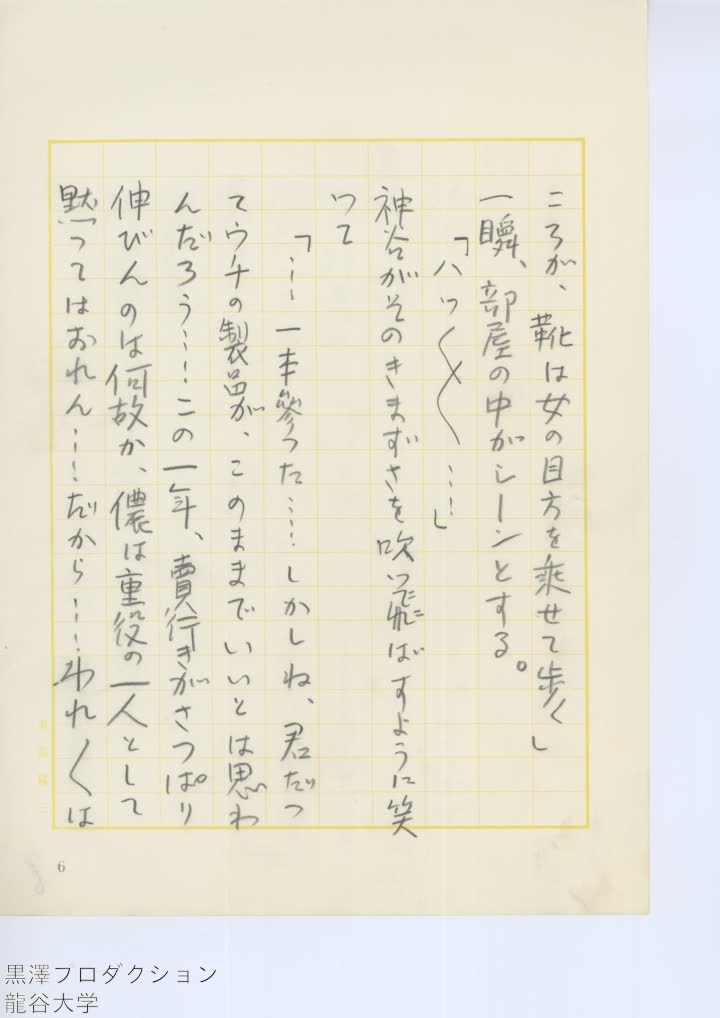 ころが、靴は女の目方を乗せて歩く」
一瞬、部屋の中がシーンとする。
「ハッ〱……」
神谷がそのきまずさを吹っ飛ばすように笑
って
「……一本参った……しかしね、君だっ
てウチの製品が、このままでいいとは思わ
んだろう……この一年、賣行きがさっぱり
伸びんのは何故か、儂は重役の一人として
黙ってはおれん……だから……われ〱は
6
黒澤プロダクション
龍谷大学